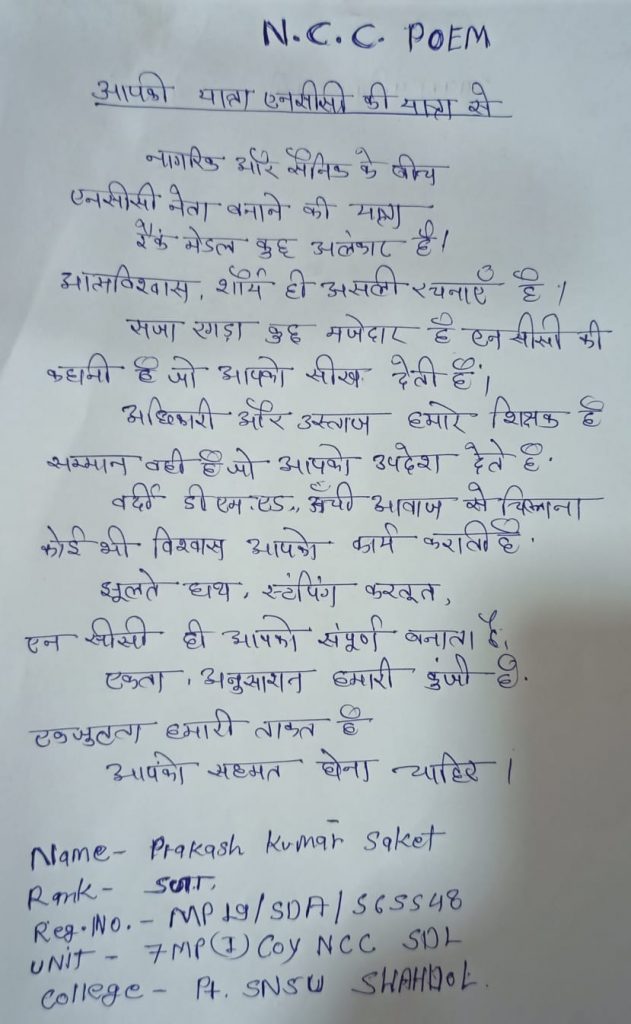 N.C.C. POEM
आपकी यात्रा एनसीसी की यात्रा से
नागरिक और सैनिक के बीच
एनसीसी नेता बनाने की यात्रा
रैंक मेडल कुछ अलंकार है।
आत्मविश्वास, शौर्य ही असली रचनाएँ है।
सजा रगड़ा कुछ मजेदार है एन सीसी की
कहानी है जो आपको सीख देती है।
अधिकारी और उस्ताज हमारे शिक्षक है
सम्मान वही है जो आपको उपदेश देते है.
वर्दी डी एम.एड., ऊँची आवाज से चिल्लाना
कोई भी विश्वास आपको कार्य कराती है.
झूलते हाथ, स्टंपिंग करतूत,
एन सीसी ही आपको संपूर्ण बनाता है,
एकता, अनुसाशन हमारी कुंजी है.
एकजुटता हमारी ताकत है
आपको सहमत होना चाहिए।
Name- Prakash Kumar Saket
Rank-
Reg.No. - MP19/SDA/365548
UNIT - 7MP(I) Coy NCC SDL
College - Pt. SNSU SHAHDOL.